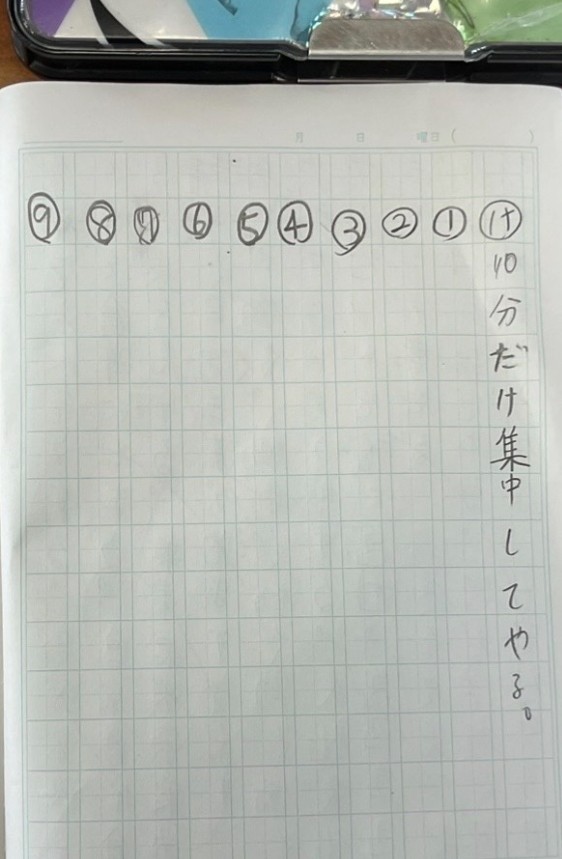 月 日 曜日( )
け 10分だけ集中してやる。
①
②
③
④
⑤
⑥
⑦
⑧
⑨